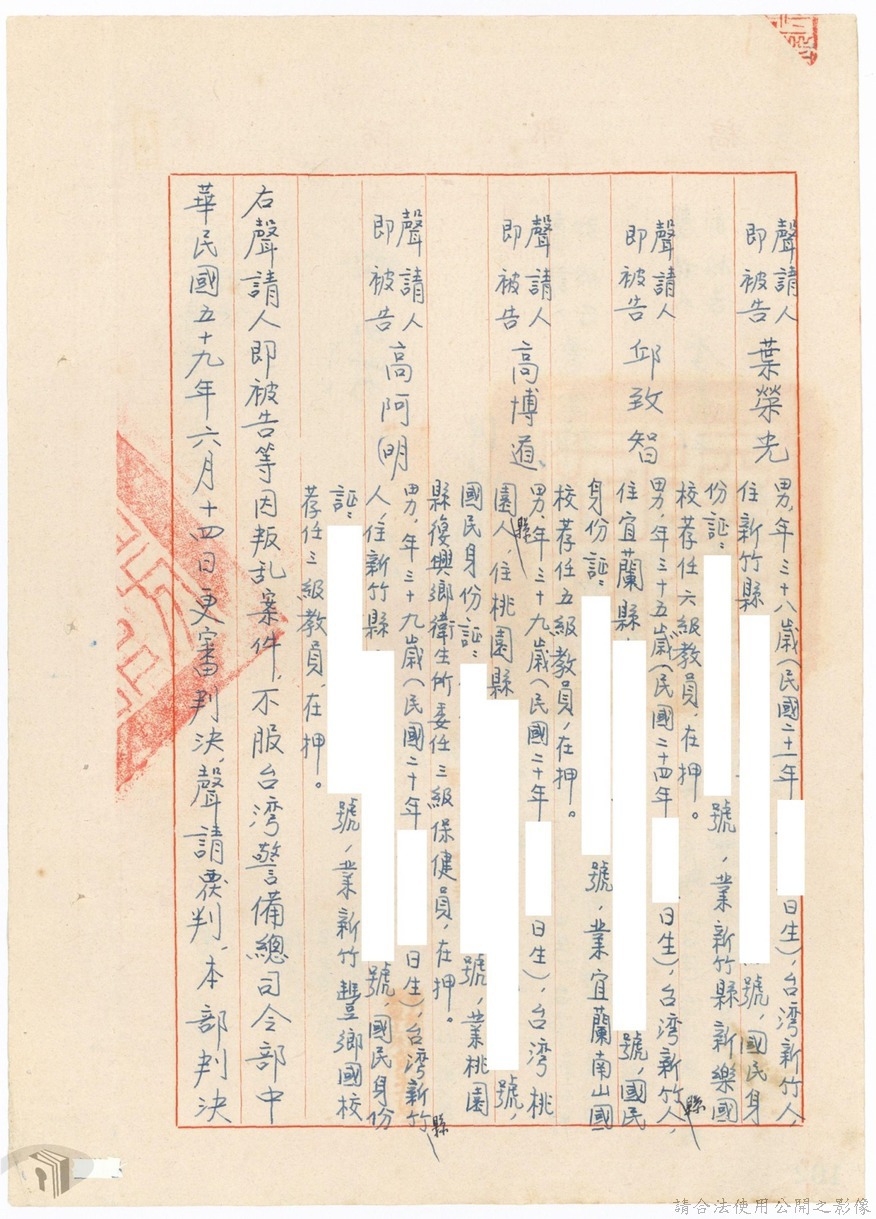 聲請人
即被告
葉榮光
男,年三十八歲(民國二十一年
日生),台湾新竹人,
住新竹縣
號,國民身
份証:
號,業新竹縣新樂國
校荐任六級教員,在押。
聲請人
即被告
邱致智
男,年三十五歲(民國二十四年
日生),台湾新竹縣人,
住宜蘭縣
號,國民
身份証:
號,業宜蘭南山國
校荐任五級教員,在押。
聲請人
即被告
高博道、
男,年三十九歲(民國二十年
日生),台湾桃
園縣人,住桃園縣
號,
國民身份証:
號,業桃園
縣復興鄉衛生所委任三級保健員,在押。
聲請人
即被告
高阿明
男,年三十九歲(民國二十年
日生),台湾新竹縣
人,住新竹縣
號,國民身份
証:
號,業新竹豐鄉國校
荐任三級教員,在押。
右聲請人即被告等因叛乱案件,不服台湾警備總司令部中
華民國五十九年六月十四日更審判決,聲請覆判,本部判決
請合法使用公開之影像